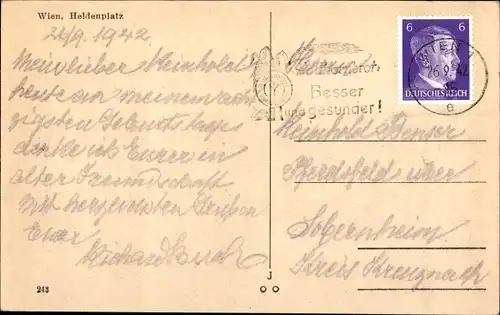 Wien, Heldenplatz
26/9. 1942
Mein lieber Reinhold
heute an meinem acht
zigsten Geburtstage
denke ich Eurer in
alter Freundschaft
Mit herzlichsten Grüßen
Euer
Richard
243
J
Herrn
Besser
und gesunder!
6 6
DEUTSCHES REICH
WIEN
26.9.42
e
Reinhold
Pferdsfeld über
Sobernheim
Kreis Kreuznach